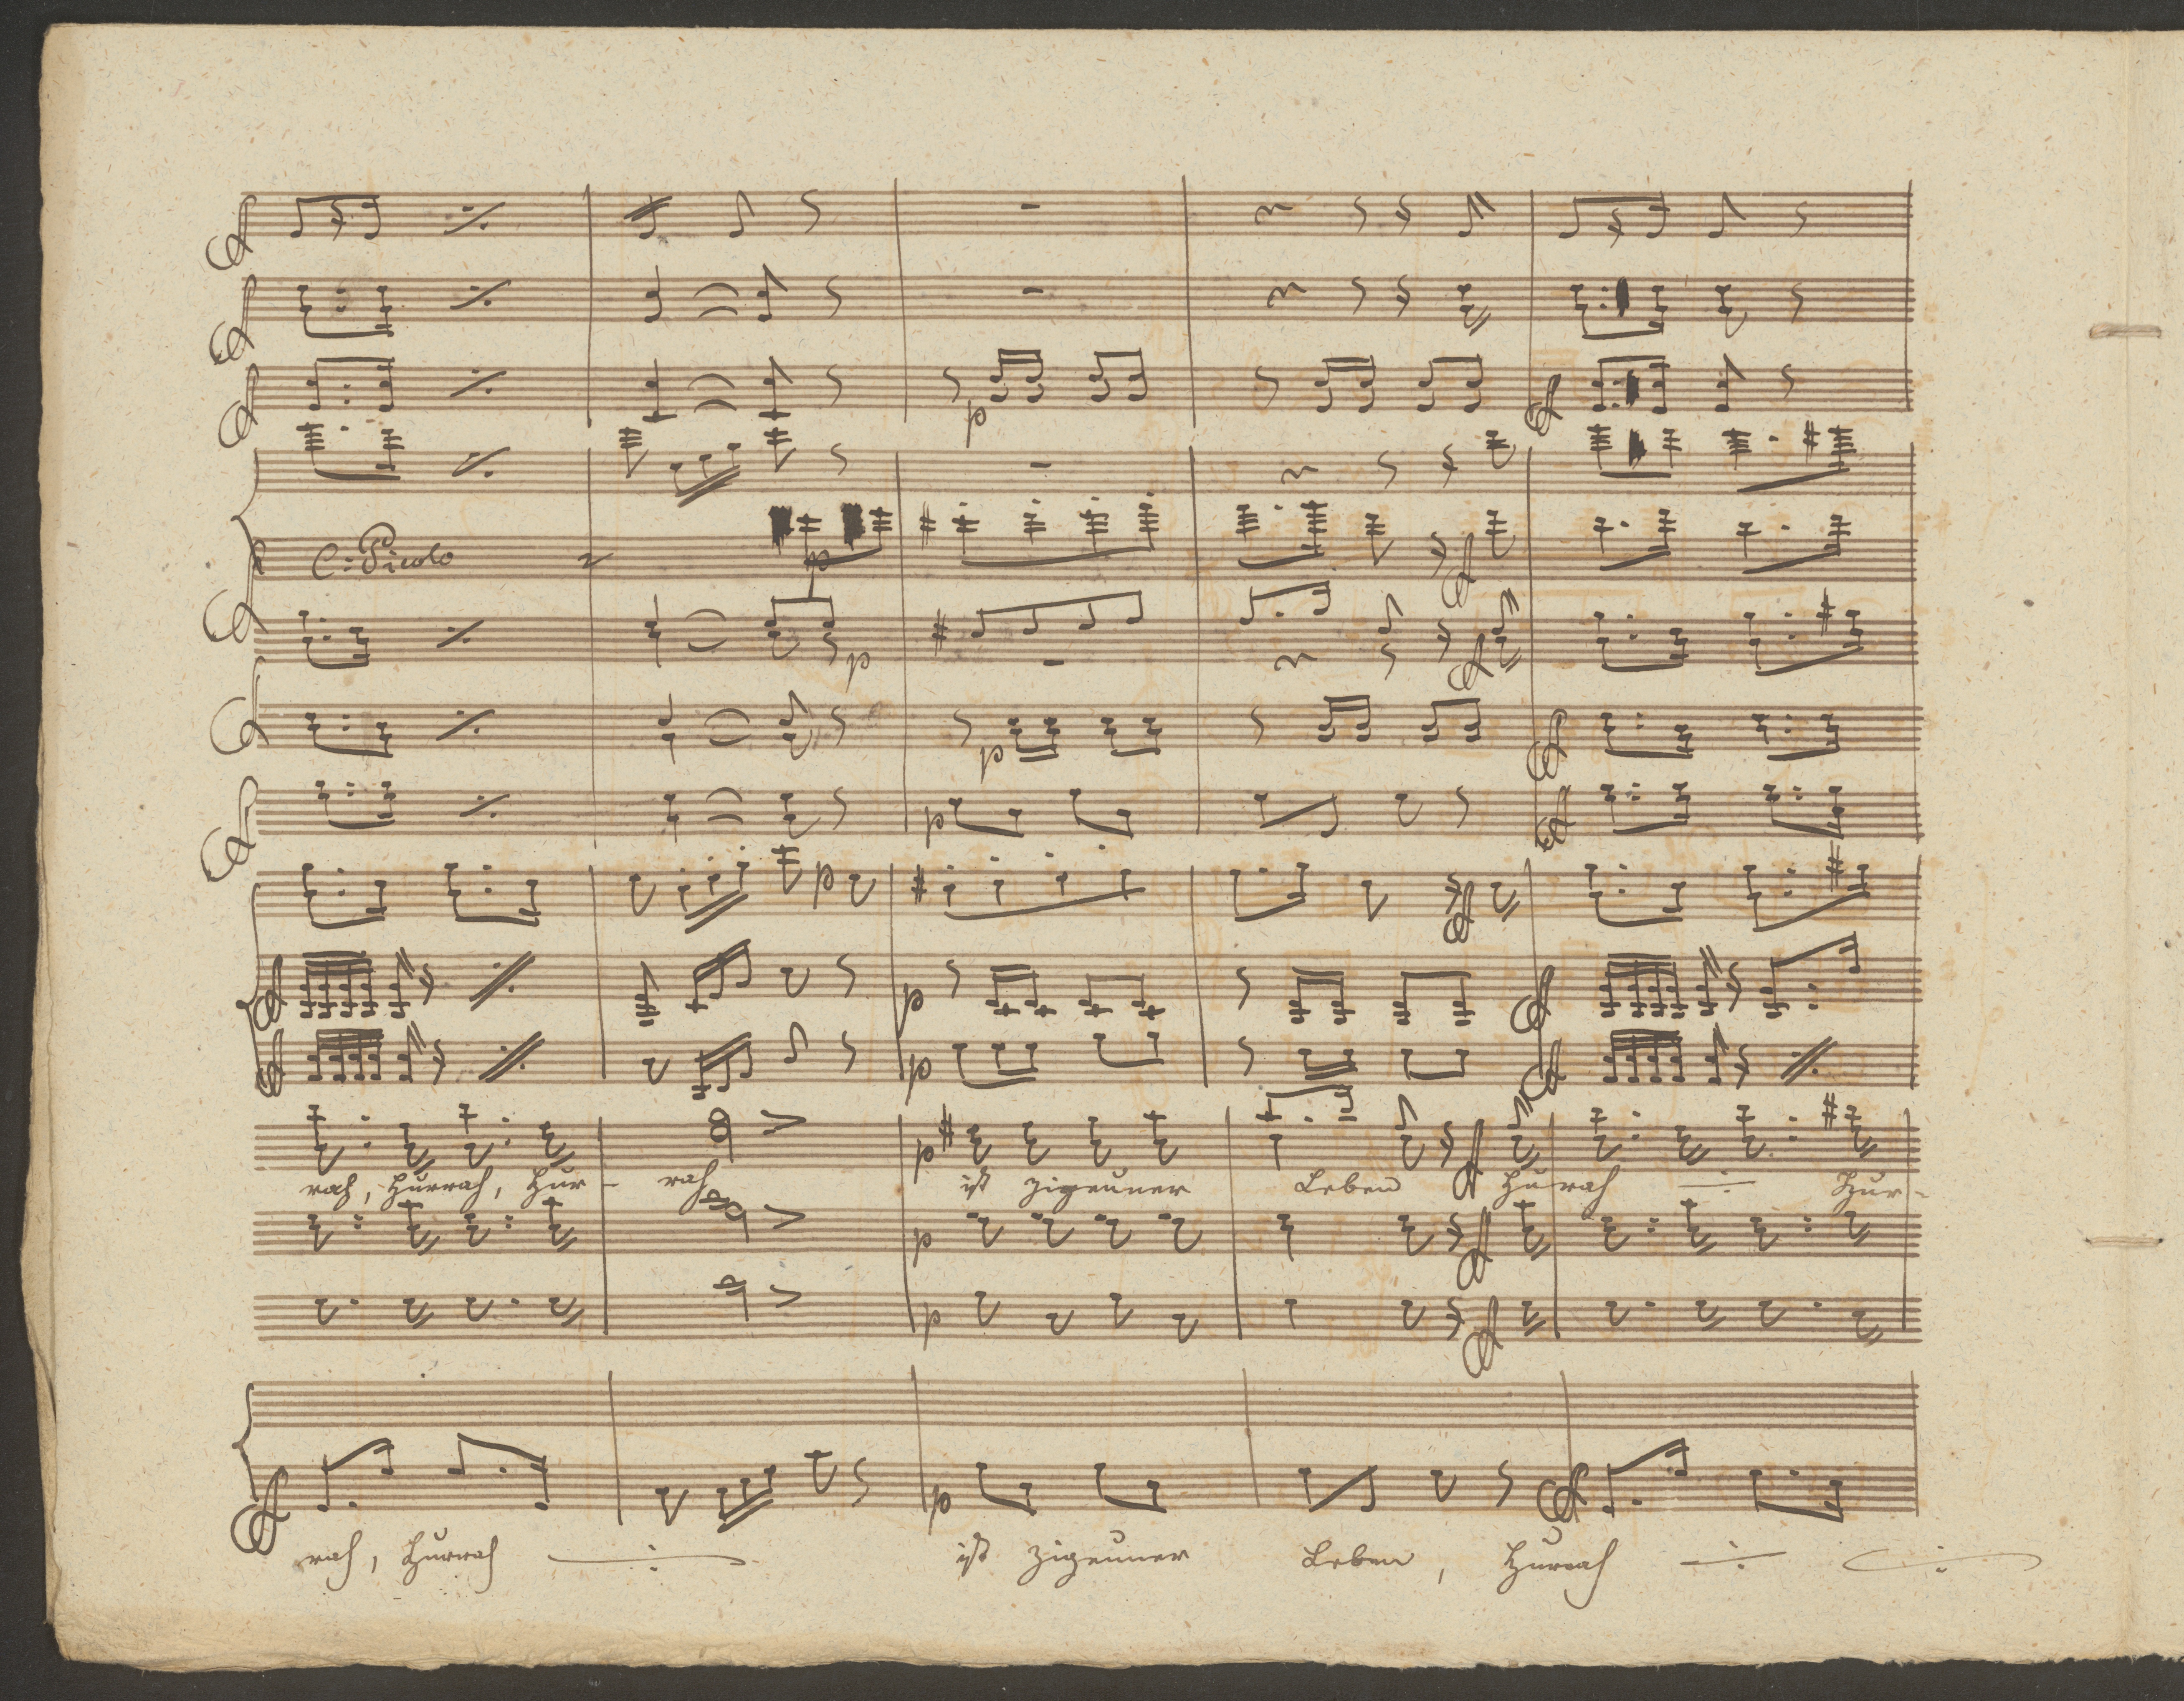 C: Picolo
p
p
p
p
p
p
p
p
p
p
rah, Hurrah, Hur- rah ist Zigeuner Leben Hurah Hur-
p
p
p
rah, Hurrah ist Zigeuner Leben, Hurrah